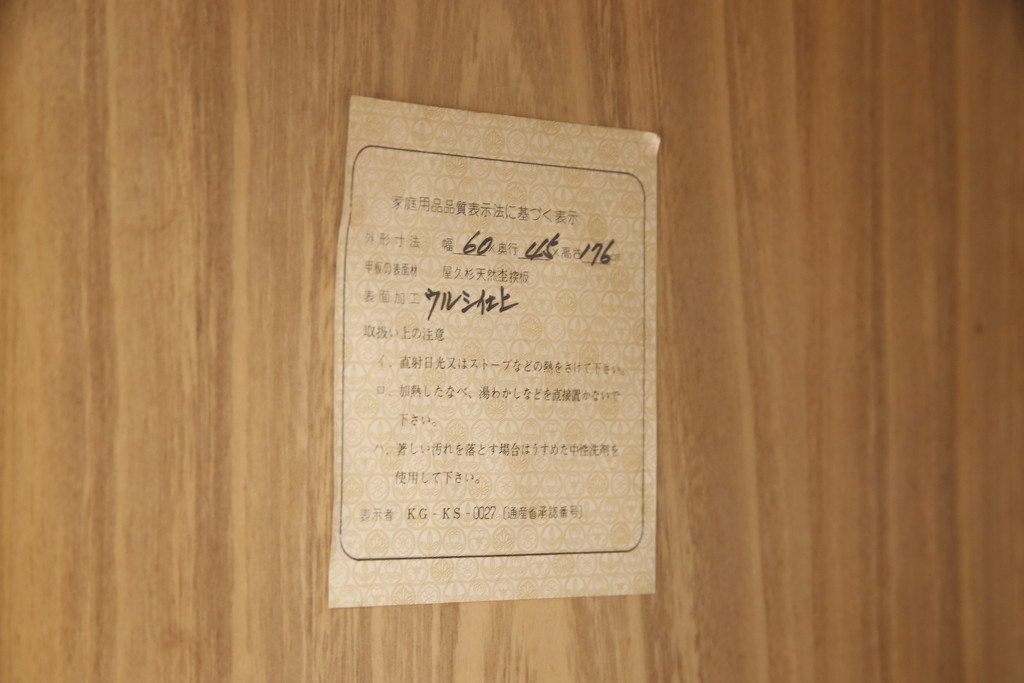 家庭用品品質表示法に基づく表示
外形寸法 幅 60 ×奥行 45 ×高さ 176 cm
甲板の表面材 屋久杉天然杢挽板
表面加工 ウルシ仕上
取扱い上の注意
イ、直射日光又はストーブなどの熱をさけて下さい。
ロ、加熱したなべ、湯わかしなどを直接置かないで
下さい。
ハ、著しい汚れを落とす場合はうすめた中性洗剤を
使用して下さい。
表示者 KG-KS-0027〔通産省承認番号〕